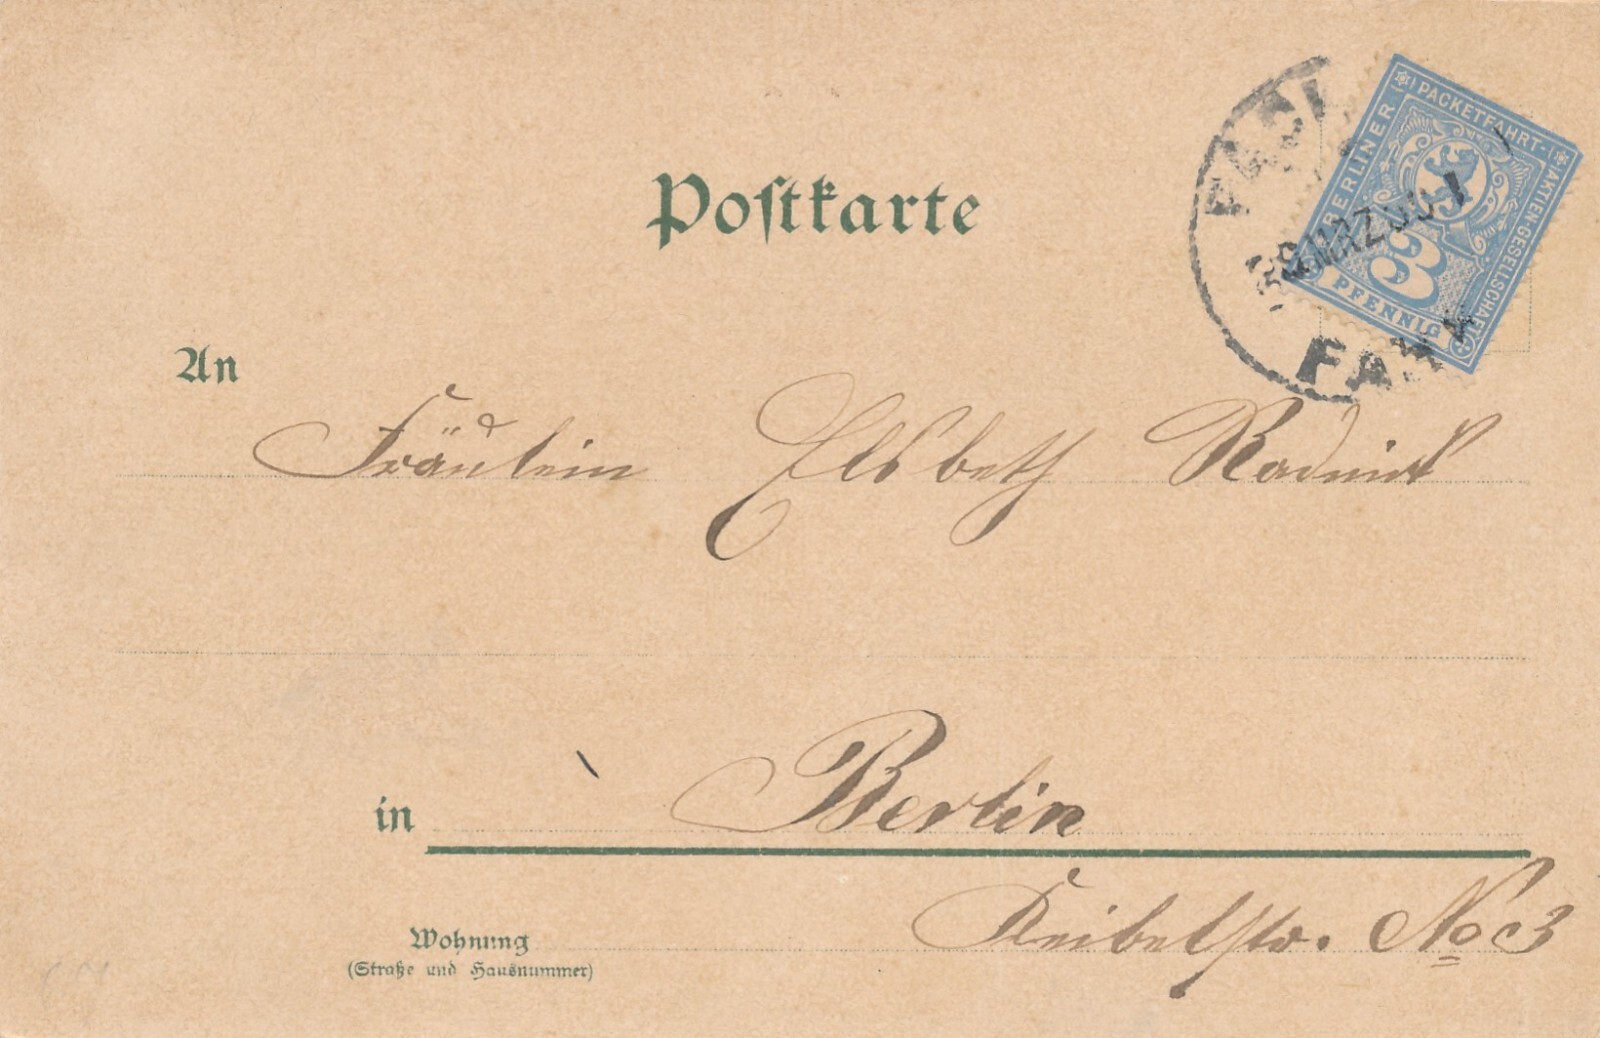 Postkarte
BERLINER PACKETFAHRT-AKTIEN-GESELLSCHAFT
3 3
PFENNIG
An
Fräulein Elsbeth
in Berlin
Wohnung Keibelstr. No 3
(Straße und Hausnummer)